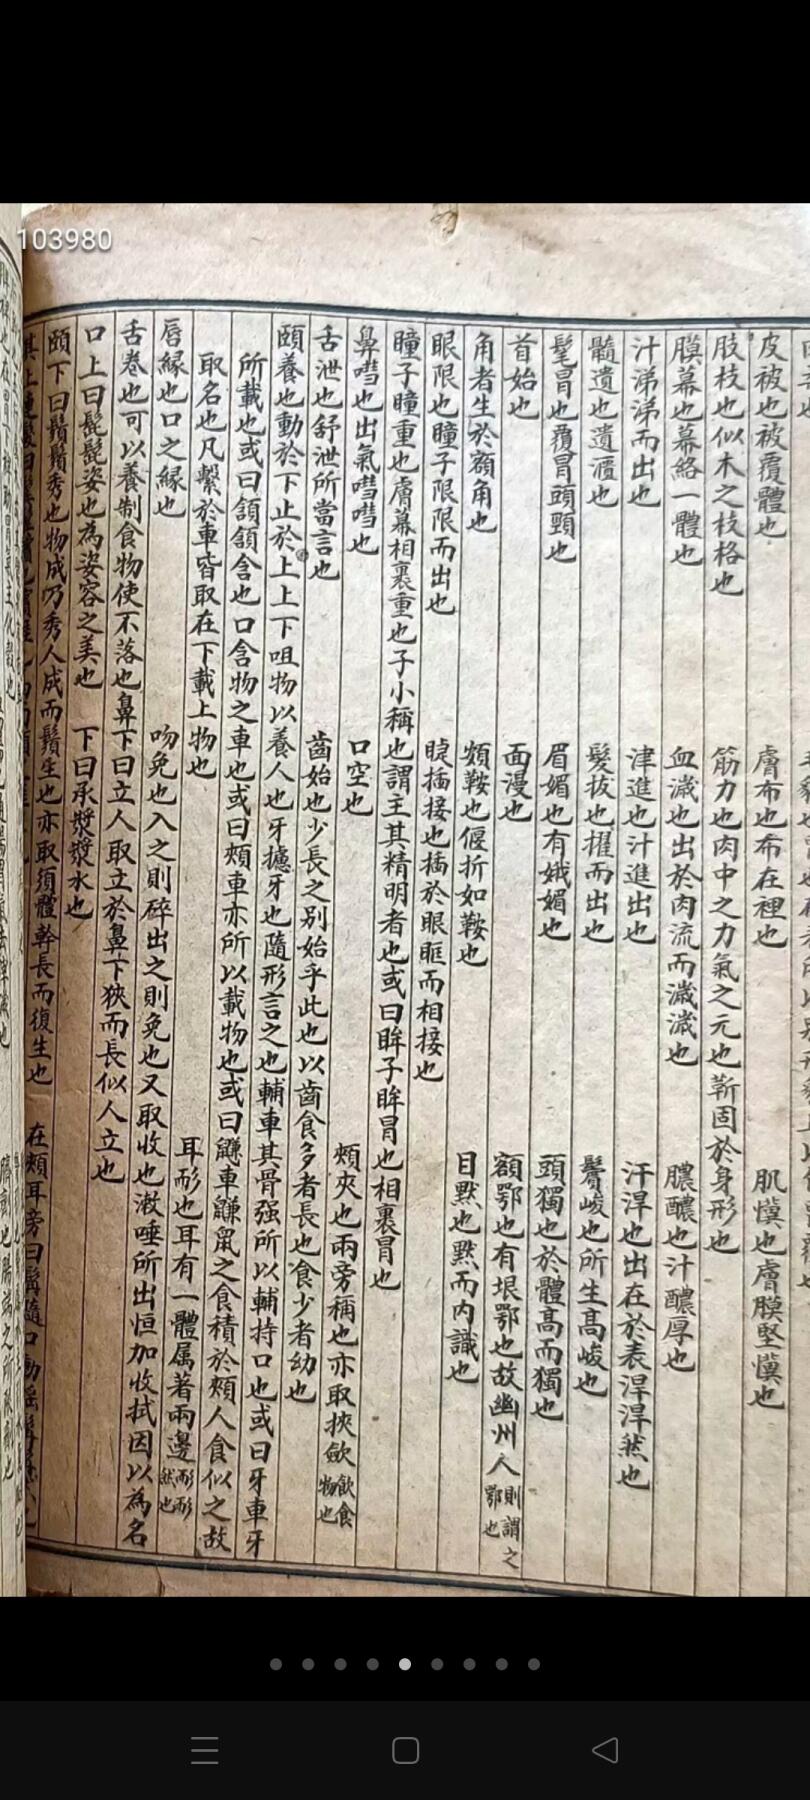 103980
皮被也被覆體也 膚布也布在裡也 肌慔也膚膜堅慔也
肢枝也似木之枝格也 筋力也肉中之力氣之元也靳固於身形也
膜幕也幕絡一體也 血濊也出於肉流而濊濊也 膿醲也汁醲厚也
汁涕涕而出也 津進也汁進出也 汗淖也出在於表淖淖然也
髓遺也遺瀢也 髮拔也擢而出也 鬢峻也所生高峻也
髦冒也覆冒頭頸也 眉媚也有娥媚也 頭獨也於體高而獨也
首始也 面漫也 額鄂也有垠鄂也故幽州人則謂之鄂也
角者生於額角也 頞鞍也偃折如鞍也 目黙也黙而内識也
眼限也瞳子限限而出也 睫插接也插於眼眶而相接也
瞳子瞳重也膚幕相裹重也子小稱也謂主其精明者也或曰眸子眸冒也相裹冒也
鼻嘒也出氣嘒嘒也 口空也 頰夾也兩旁稱也亦取挾歛飲食物也
舌泄也舒泄所當言也 齒始也少長之别始乎此也以齒食多者長也食少者幼也
頤養也動於下止於上上下咀物以養人也牙攄牙也隨形言之也輔車其骨强所以輔持口也或曰牙車牙
所載也或曰頷頷含也口含物之車也或曰頰車亦所以載物也或曰鼸車鼸鼠之食積於頰人食似之故
取名也凡繫於車皆取在下載上物也 耳耏也耳有一體属著兩邊耏耏然也
唇緣也口之緣也 吻免也入之則碎出之則免也又取收也漱唾所出恒加收拭因以為名
舌卷也可以養制食物使不落也鼻下曰立人取立於鼻下狹而長似人立也
口上曰髭髭姿也為姿容之美也 下曰承漿漿水也
頤下曰鬚鬚秀也物成乃秀人成而鬚生也亦取須體幹長而復生也 在頰耳旁曰髯隨口動摇